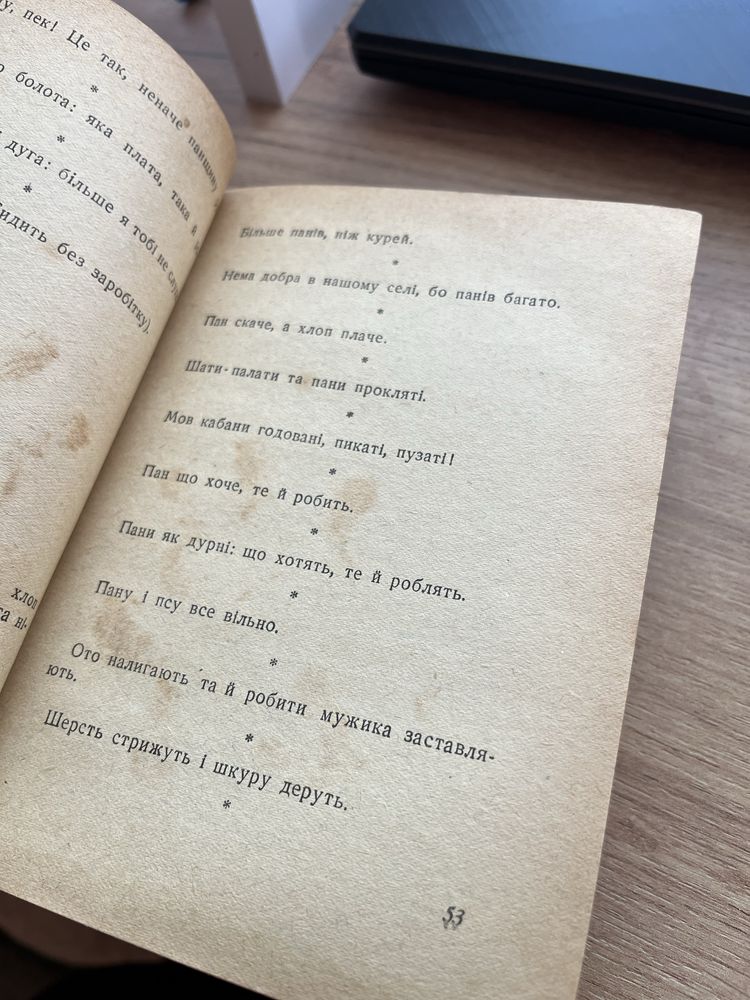 пек! Це так, неначе панщину
*
болота: яка плата, така й
*
дуга: більше я тобі не
*
без заробітку).
хлоп
Більше панів, ніж курей.
*
Нема добра в нашому селі, бо панів багато.
*
Пан скаче, а хлоп плаче.
*
Шати-палати та пани прокляті.
*
Мов кабани годовані, пикаті, пузаті!
*
Пан що хоче, те й робить.
*
Пани як дурні: що хотять, те й роблять.
*
Пану і псу все вільно.
*
Ото налигають та й робити мужика заставля-
ють.
*
Шерсть стрижуть і шкуру деруть.
*
53